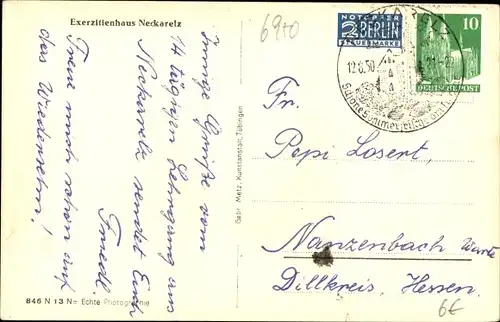 Exerzitienhaus Neckarelz
Innige Grüße vom
14 tägigen Lehrgang aus
Neckarelz sendet Euch
Friedl.
Freue mich schon auf
das Wiedersehn!
846 N 13 N= Echte Photographie
Gebr. Metz, Kunstanstalt, Tübingen
6920
NOTOPFER
2 BERLIN
STEUERMARKE
12.6.50
10
DEUTSCHE POST
Fr.
Pepi Losert,
Nanzenbach
Dillkreis, Hessen.
6€